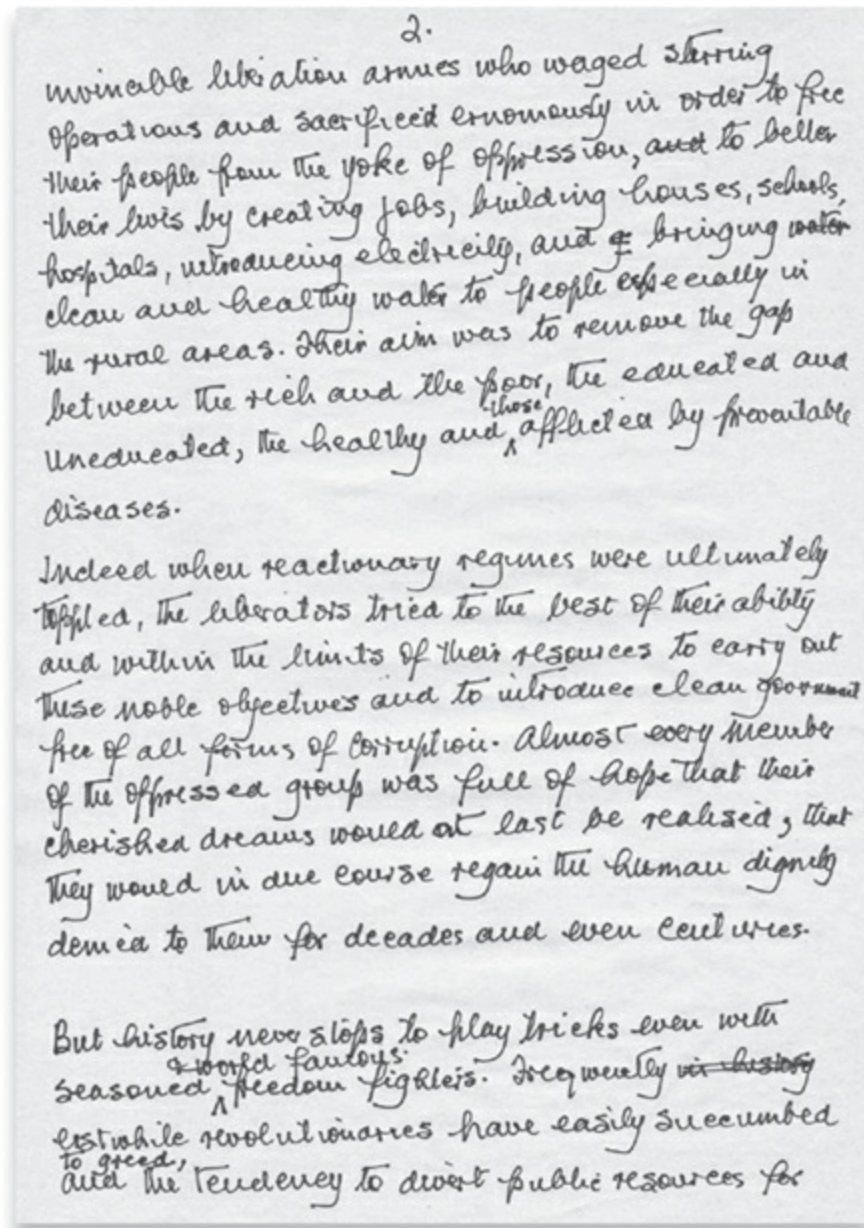 2.
invincible liberation armies who waged stirring
operations and sacrificed ernomously in order to free
their people from the yoke of oppression, and to better
their lives by creating jobs, building houses, schools,
hospitals, introducing electricity, and bringing water
clean and healthy water to people especially in
the rural areas. Their aim was to remove the gap
between the rich and the poor, the educated and
uneducated, the healthy and those afflicted by preventable
diseases.
Indeed when reactionary regimes were ultimately
toppled, the liberators tried to the best of their ability
and within the limits of their resources to carry out
these noble objectives and to introduce clean government
free of all forms of corruption. Almost every member
of the oppressed group was full of hope that their
cherished dreams would at last be realised, that
they would in due course regain the human dignity
denied to them for decades and even centuries.
But history never stops to play tricks even with
seasoned & world famous freedom fighters. Frequently in history
erstwhile revolutionaries have easily succumbed
to greed,
and the tendency to divert public resources for